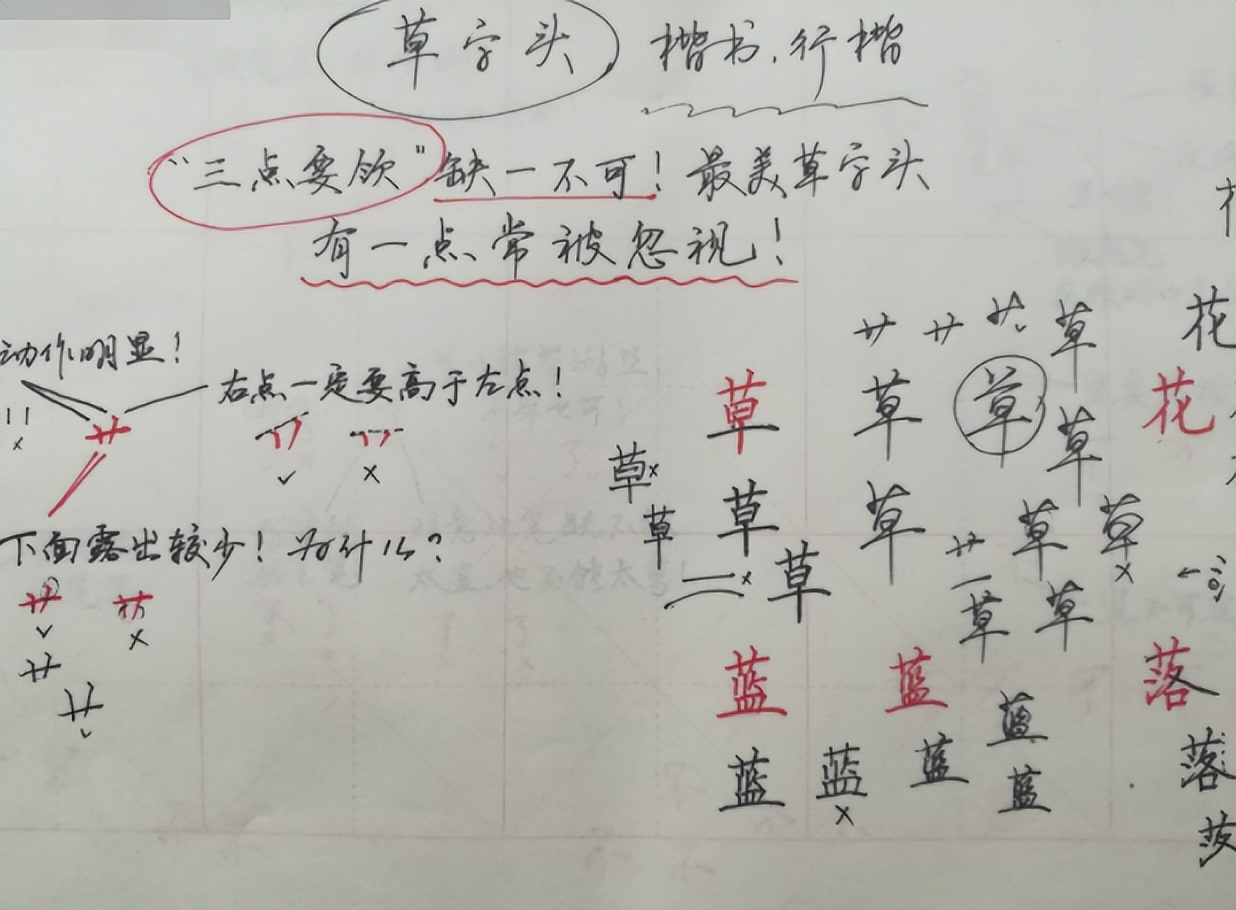 草字头 楷书、行楷
“三点要领”缺一不可！最美草字头
有一点常被忽视！
动作明显！
右点一定要高于左点！
下面露出较少！为什么？
草 草 草 草 花
草 草 草 花
草 草 草 草 草
草 草 草
蓝 蓝 蓝 落
蓝 蓝 蓝 蓝 落
落